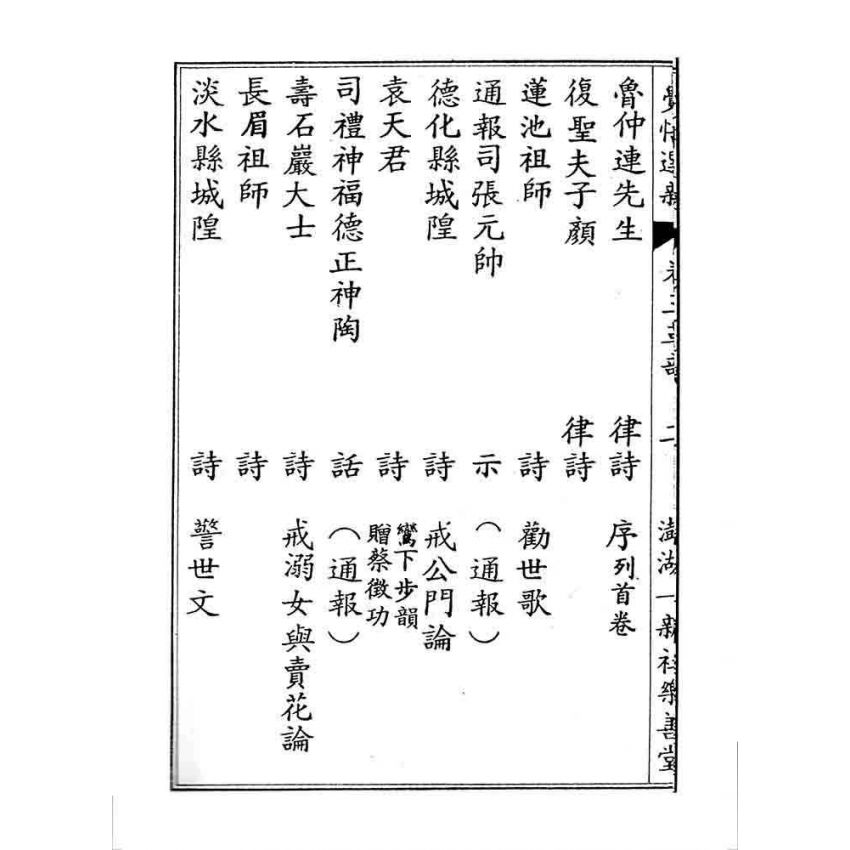 覺悟選新 卷三 二 澎湖一新社樂善堂
魯仲連先生 律詩 序列首卷
復聖夫子顏 律詩
蓮池祖師 詩 勸世歌
通報司張元帥 示 （通報）
德化縣城隍 詩 戒公門論
袁天君 詩 鸞下步韻
贈蔡徵功
司禮神福德正神陶 話 （通報）
壽石巖大士 詩 戒溺女與賣花論
長眉祖師 詩
淡水縣城隍 詩 警世文